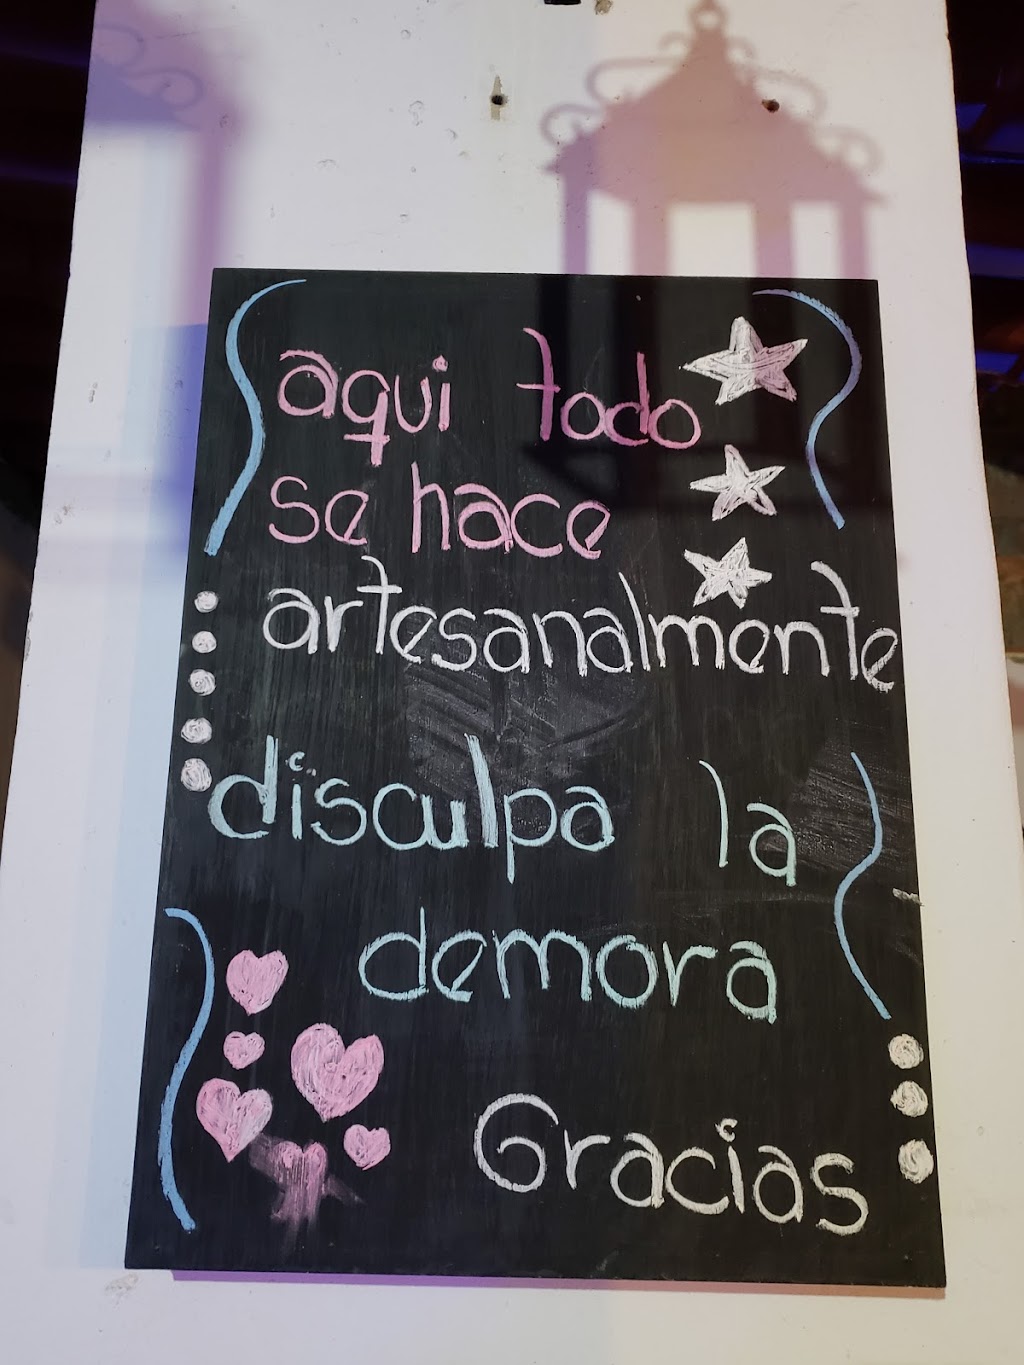 aqui todo
se hace
artesanalmente
disculpa la
demora
Gracias